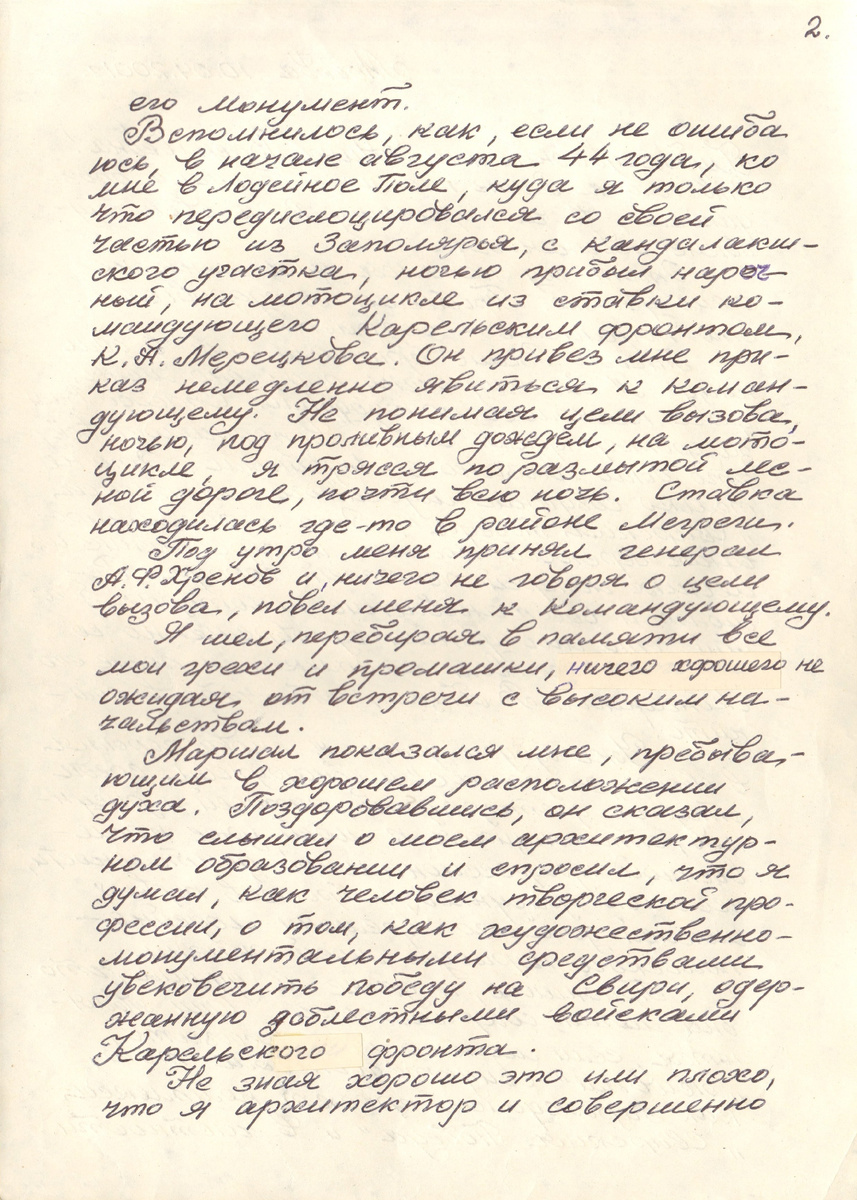 2.
его монумент.
Вспомнилось, как, если не ошиба
юсь, в начале августа 44 года, ко
мне в Лодейное Поле, куда я только
что передислоцировался со своей
частью из Заполярья, с кандалакш-
ского участка, ночью прибыл нароч-
ный, на мотоцикле из ставки ко-
мандующего Карельским фронтом,
К.А. Мерецкова. Он привез мне при-
каз немедленно явиться к коман-
дующему. Не понимая цели вызова,
ночью, под проливным дождем, на мото-
цикле, я трясся по размытой лес-
ной дороге, почти всю ночь. Ставка
находилась где-то в районе Мегреги.
Под утро меня принял генерал
А.Ф. Хренов и, ничего не говоря о цели
вызова, повел меня к командующему.
Я шел, перебирая в памяти все
мои грехи и промашки, ничего хорошего не
ожидая от встречи с высоким на-
чальством.
Маршал показался мне, пребыва-
ющим в хорошем расположении
духа. Поздоровавшись, он сказал,
что слышал о моем архитектур-
ном образовании и спросил, что я
думал, как человек творческой про-
фессии, о том, как художественно-
монументальными средствами
увековечить победу на Свири, одер-
жанную доблестными войсками
Карельского фронта.
Не зная хорошо это или плохо,
что я архитектор и совершенно